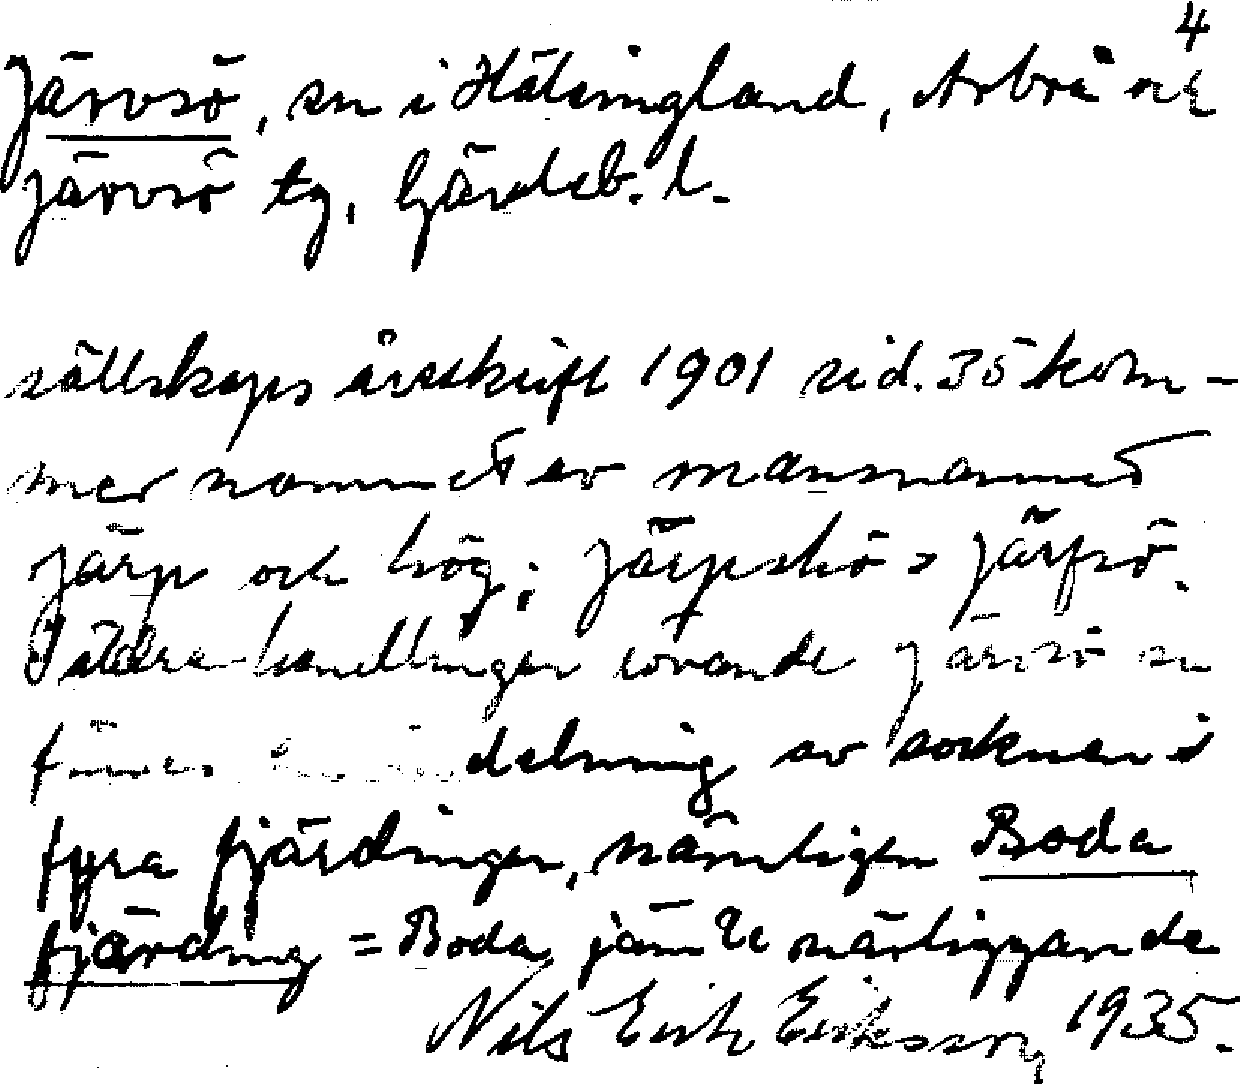 4
Järvsö, sn i Hälsingland, Arbrå och
Järvsö tg, Gävleb. l.
sällskaps årsskrift 1901 sid. 35 kom-
mer namnet av mansnamnet
Järp och hög; Järpshö > Järfsö.
I äldre handlingar rörande Järvsö sn
finnes en indelning av socknen i
fyra fjärdingar, nämligen Boda
fjärding = Boda jämte närliggande
Nils Erik Eriksson, 1935.